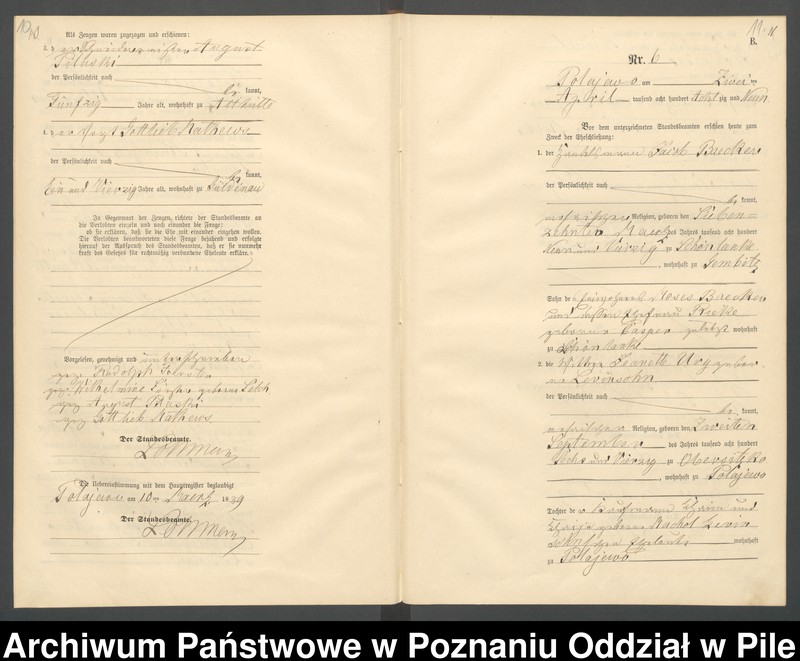 Als Zeugen waren zugezogen und erschienen:
3. d er
August
der Persönlichkeit nach
kannt,
Fünfzig Jahre alt, wohnhaft zu Althütte
4. d er Gottlieb Mathews
der Persönlichkeit nach
kannt,
Ein und Vierzig Jahre alt, wohnhaft zu
In Gegenwart der Zeugen, richtete der Standesbeamte an
die Verlobten einzeln und nach einander die Frage:
ob sie erklären, daß sie die Ehe mit einander eingehen wollen.
Die Verlobten beantworteten diese Frage bejahend und erfolgte
hierauf der Ausspruch des Standesbeamten, daß er sie nunmehr
kraft des Gesetzes für rechtmäßig verbundene Eheleute erkläre.
Vorgelesen, genehmigt und unterschrieben
gez. Rudolph
gez. Wilhelmine geborene
gez. August
gez. Gottlieb Mathews
Der Standesbeamte.
Die Uebereinstimmung mit dem Hauptregister beglaubigt
Polajewo am 10 ten Maerz 1889
Der Standesbeamte.
11
B.
Nr. 6
Polajewo am Zwei ten
April tausend acht hundert Achtzig und Neun
Vor dem unterzeichneten Standesbeamten erschien heute zum
Zweck der Eheschließung:
1. der Handelsmann Jacob Baecker
der Persönlichkeit nach
kannt,
mosaischer Religion, geboren den Sieben=
zehnten Maerz des Jahres tausend acht hundert
Neun und Vierzig zu Schönlanke
, wohnhaft zu Gembitz
Sohn de Moses Baecker
und dessen Ehefrau Rieke
geborene Casper zuletzt wohnhaft
zu Schönlanke
2. die Wittwe Jeanette Ury gebor=
ne Levinsohn
der Persönlichkeit nach
kannt,
mosaischer Religion, geboren den Zweiten
September des Jahres tausend acht hundert
Sechs und Vierzig zu Obersitzko
, wohnhaft zu Polajewo
Tochter de r Kaufmann und
geborene Rachol Levin
sohn'schen Eheleute wohnhaft
zu Polajewo
Archiwum Państwowe w Poznaniu Oddział w Pile